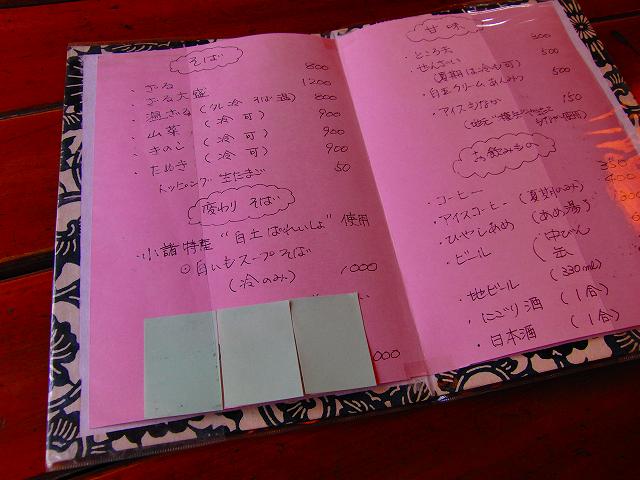 そば
・ざる 800
・ざる大盛 1200
・温ざる (タレ冷 そば温) 800
・山菜 (冷可) 900
・きのこ (冷可) 900
・たぬき (冷可) 900
トッピング 生たまご 50
変わり そば
・小諸特産 "白土ばれいしょ" 使用
◎白いもスープそば
(冷のみ) 1000
000
甘味
・ところ天 300
・ぜんざい 500
(夏期は冷も可)
・白玉クリームあんみつ 500
・アイスもなか 150
お飲みもの
・コーヒー 350
・アイスコーヒー (夏期のみ) 400
・ひやしあめ (あめ湯)
・ビール (中びん
缶
・地ビール (330ml)
・にごり酒 (1合)
・日本酒 (1合)